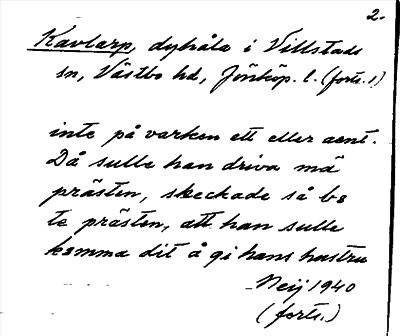 2.
Kavlarp, dyhåla i Villstads
sn, Västbo hd, Jönköp. l. (forts. 1)
inte på varken ett eller aent.
Då sulle han driva mä
prästen, skeckade så be
te prästen, att han sulle
komma dit å gi hans hustru
Neij 1940
(forts.)